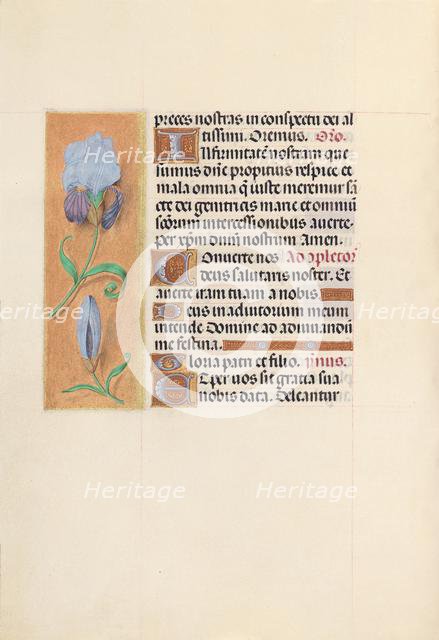 preces nostras in conspectu dei al
tissimi. Oremus. Oro.
Infirmitatē nostram que
sumus dñe propitius respice et
mala omnia q̃ iuste meremur sā
cte dei genitricis marie et omniū
sc̃orum intercessionibus auerte.
per xp̃m dnm̃ nostrum Amen.
Conuerte nos Ad cpletor
deus salutaris noster. Et
auerte iram tuam a nobis
Deus in adiutorium meum
intende Domine ad adiuuandū
me festina.
Gloria patri et filio. ymnus.
Et per uos sit gracia sua
nobis data. Deleantur
Heritage
Heritage
Heritage
Heritage
Heritage
Heritage
Heritage
Heritage